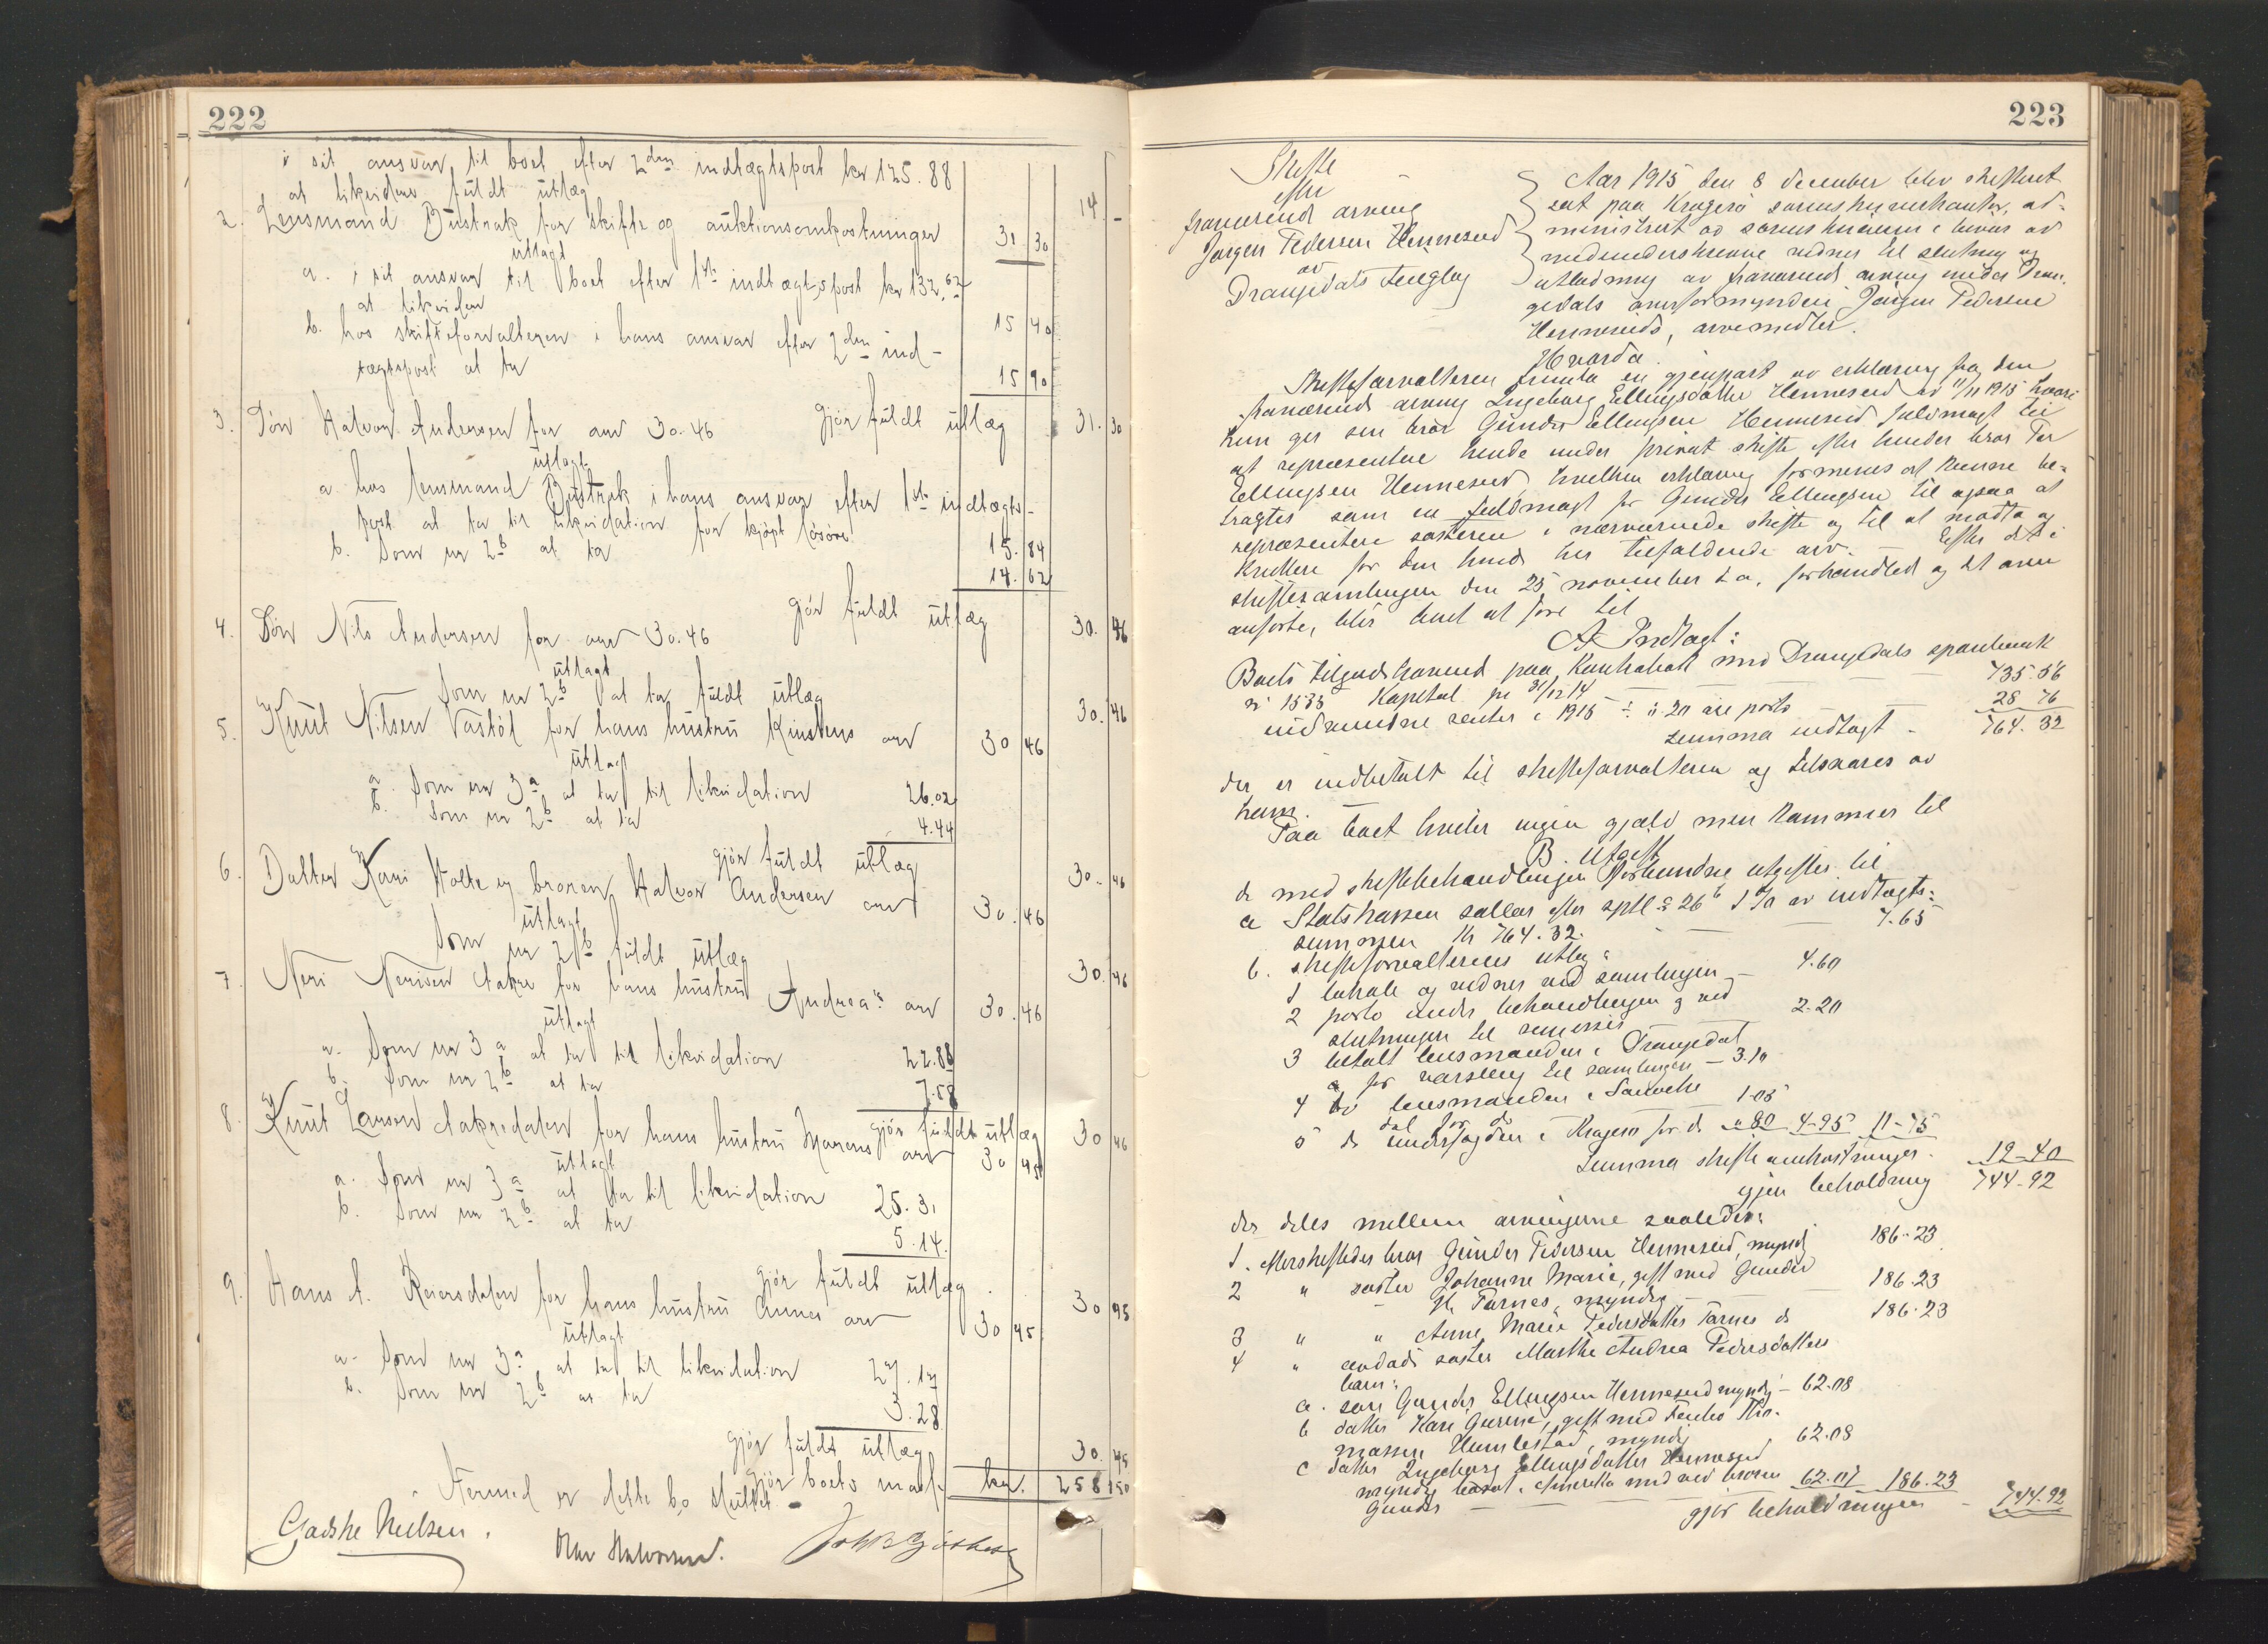 222
i sit ansvar til boet efter 2den indtægtspost kr 125.88
at likvidere fuldt utlæg 14 -
2. Lensmand Bustrak for skifte og auktionsomkostninger 31 30
utlagt
a. i sit ansvar til boet efter 1ste indtægtspost kr 132.62
at likvidere 15 40
b. hos skifteforvalteren i hans ansvar efter 2den ind-
tægtspost at ta 15 90
gjør fuldt utlæg 31. 30
3. Søn Halvor Andersen for arv 30.46
utlagt
a. hos lensmand Bustrak i hans ansvar efter 1ste indtægts-
post at ta til likvidation for kjøpt løsøre 15.84
b. Som nr 2b at ta 14.62
gjør fuldt utlæg 30. 46
4. Søn Nils Andersen for arv 30.46
utlagt
Som nr 2b at ta fuldt utlæg 30. 46
5. Knut Nilsen Vastøl for hans hustru Kirstens arv 30 46
utlagt
a. Som nr 3a at ta til likvidation 26.02
b. Som nr 2b at ta 4.44
gjør fuldt utlæg 30. 46
6. Datter Kari Holte og broren Halvor Andersen arv 30. 46
utlagt
Som nr 2b fuldt utlæg 30. 46
7. Neri Nerisen Aakre for hans hustru Andrea's arv 30. 46
utlagt
a. Som nr 3a at ta til likvidation 22.88
b. Som nr 2b at ta 7.58
gjør fuldt utlæg 30 46
8. Knut Larsen Aakredalen for hans hustru Marens arv 30 45
utlagt
a. Som nr 3a at ta til likvidation 25.31
b. Som nr 2b at ta 5.14
gjør fuldt utlæg 30 45
9. Hans A. Reiersdalen for hans hustru Annes arv 30 45
utlagt
a. Som nr 3a at ta til likvidation 27.17
b. Som nr 2b at ta 3.28
gjør fuldt utlæg 30. 45
gjør boets masse kr. 258 50
Hermed er dette bo sluttet.
Gadske Nielsen. Olav Halvorsen.
223
Skifte
efter
fraværende arving
Jørgen Pedersen Henneseid
av
Drangedals tinglag
Aar 1915 den 8 december blev skifteret
sat paa Kragerø sorenskriverkontor, ad-
ministrert av sorenskriveren i nærvær av
medunderskrevne vidner til slutning og
utlodning av fraværende arving under Dran-
gedals overformynderi Jørgen Pedersen
Henneseids, arvemidler.
Hvorda.
Skifteforvalteren fremla en gjenpart av erklæring fra den
fraværende arving Ingeborg Ellingsdatter Henneseid av 11/11 1915 hvori
hun gir sin bror Gunder Ellingsen Henneseid fuldmagt til
at repræsentere hende under privat skifte efter hendes bror Tor
Ellingsen Henneseid hvilken erklæring formenes at kunne be-
tragtes som en fuldmagt for Gunder Ellingsen til ogsaa at
repræsentere søsteren i nærværende skifte og til at motta og
kvittere for den hende her tilfaldende arv. – Efter det i
skiftesamlingen den 25 november d.a. forhandlet og det oven
anførte, blir boet at føre til
A. Indtægt:
Boets tilgodehavende paa kontrabok med Drangedals sparebank
nr 1535 Kapital pr 31/12 14 735.56
indvundne renter i 1915 ÷ 20 øre porto 28 76
Summa indtægt 764.32
der er indbetalt til skifteforvalteren og tilsvares av
ham.
Paa boet hviler ingen gjæld men kommer til
B. Utgift
de med skiftebehandlingen forbundne utgifter til
a Statskassen sallær efter sptl § 26b 1% av indtægts-
summen kr 764.32. 7.65
b. skifteforvalterens utlæg:
1 lokale og vidner ved samlingen 4.60
2 porto under behandlingen og ved
slutningen til remisser 2.20
3 betalt lensmanden i Drangedal
for varsling til samlingen 3.10
4 do lensmanden i Sauwhe
dal for do 1.05
5 do underfogden i Kragerø for do 0.80 4.95 11-75
Summa skifteomkostninger 19-40
igjen beholdning 744-92
der deles mellem arvingerne saaledes:
1. Morshelfledes bror Gunder Pedersen Henneseid, myndig 186.23
2 " søster Johanne Marie, gift med Gunder
H. Farnes, myndig 186.23
3 " " Anne Marie Pedersdatter Farnes do 186.23
4 " avdøde søster Marthe Andrea Pedersdatters
barn:
a. søn Gunder Ellingsen Henneseid myndig 62.08
b datter Kari Gurine, gift med
Humlestad, myndig 62.08
c datter Ingeborg Ellingsdatter Henneseid
myndig bosat i Amerika med ved broren
Gunder 62.07 186.23
gjør beholdningen 744.92